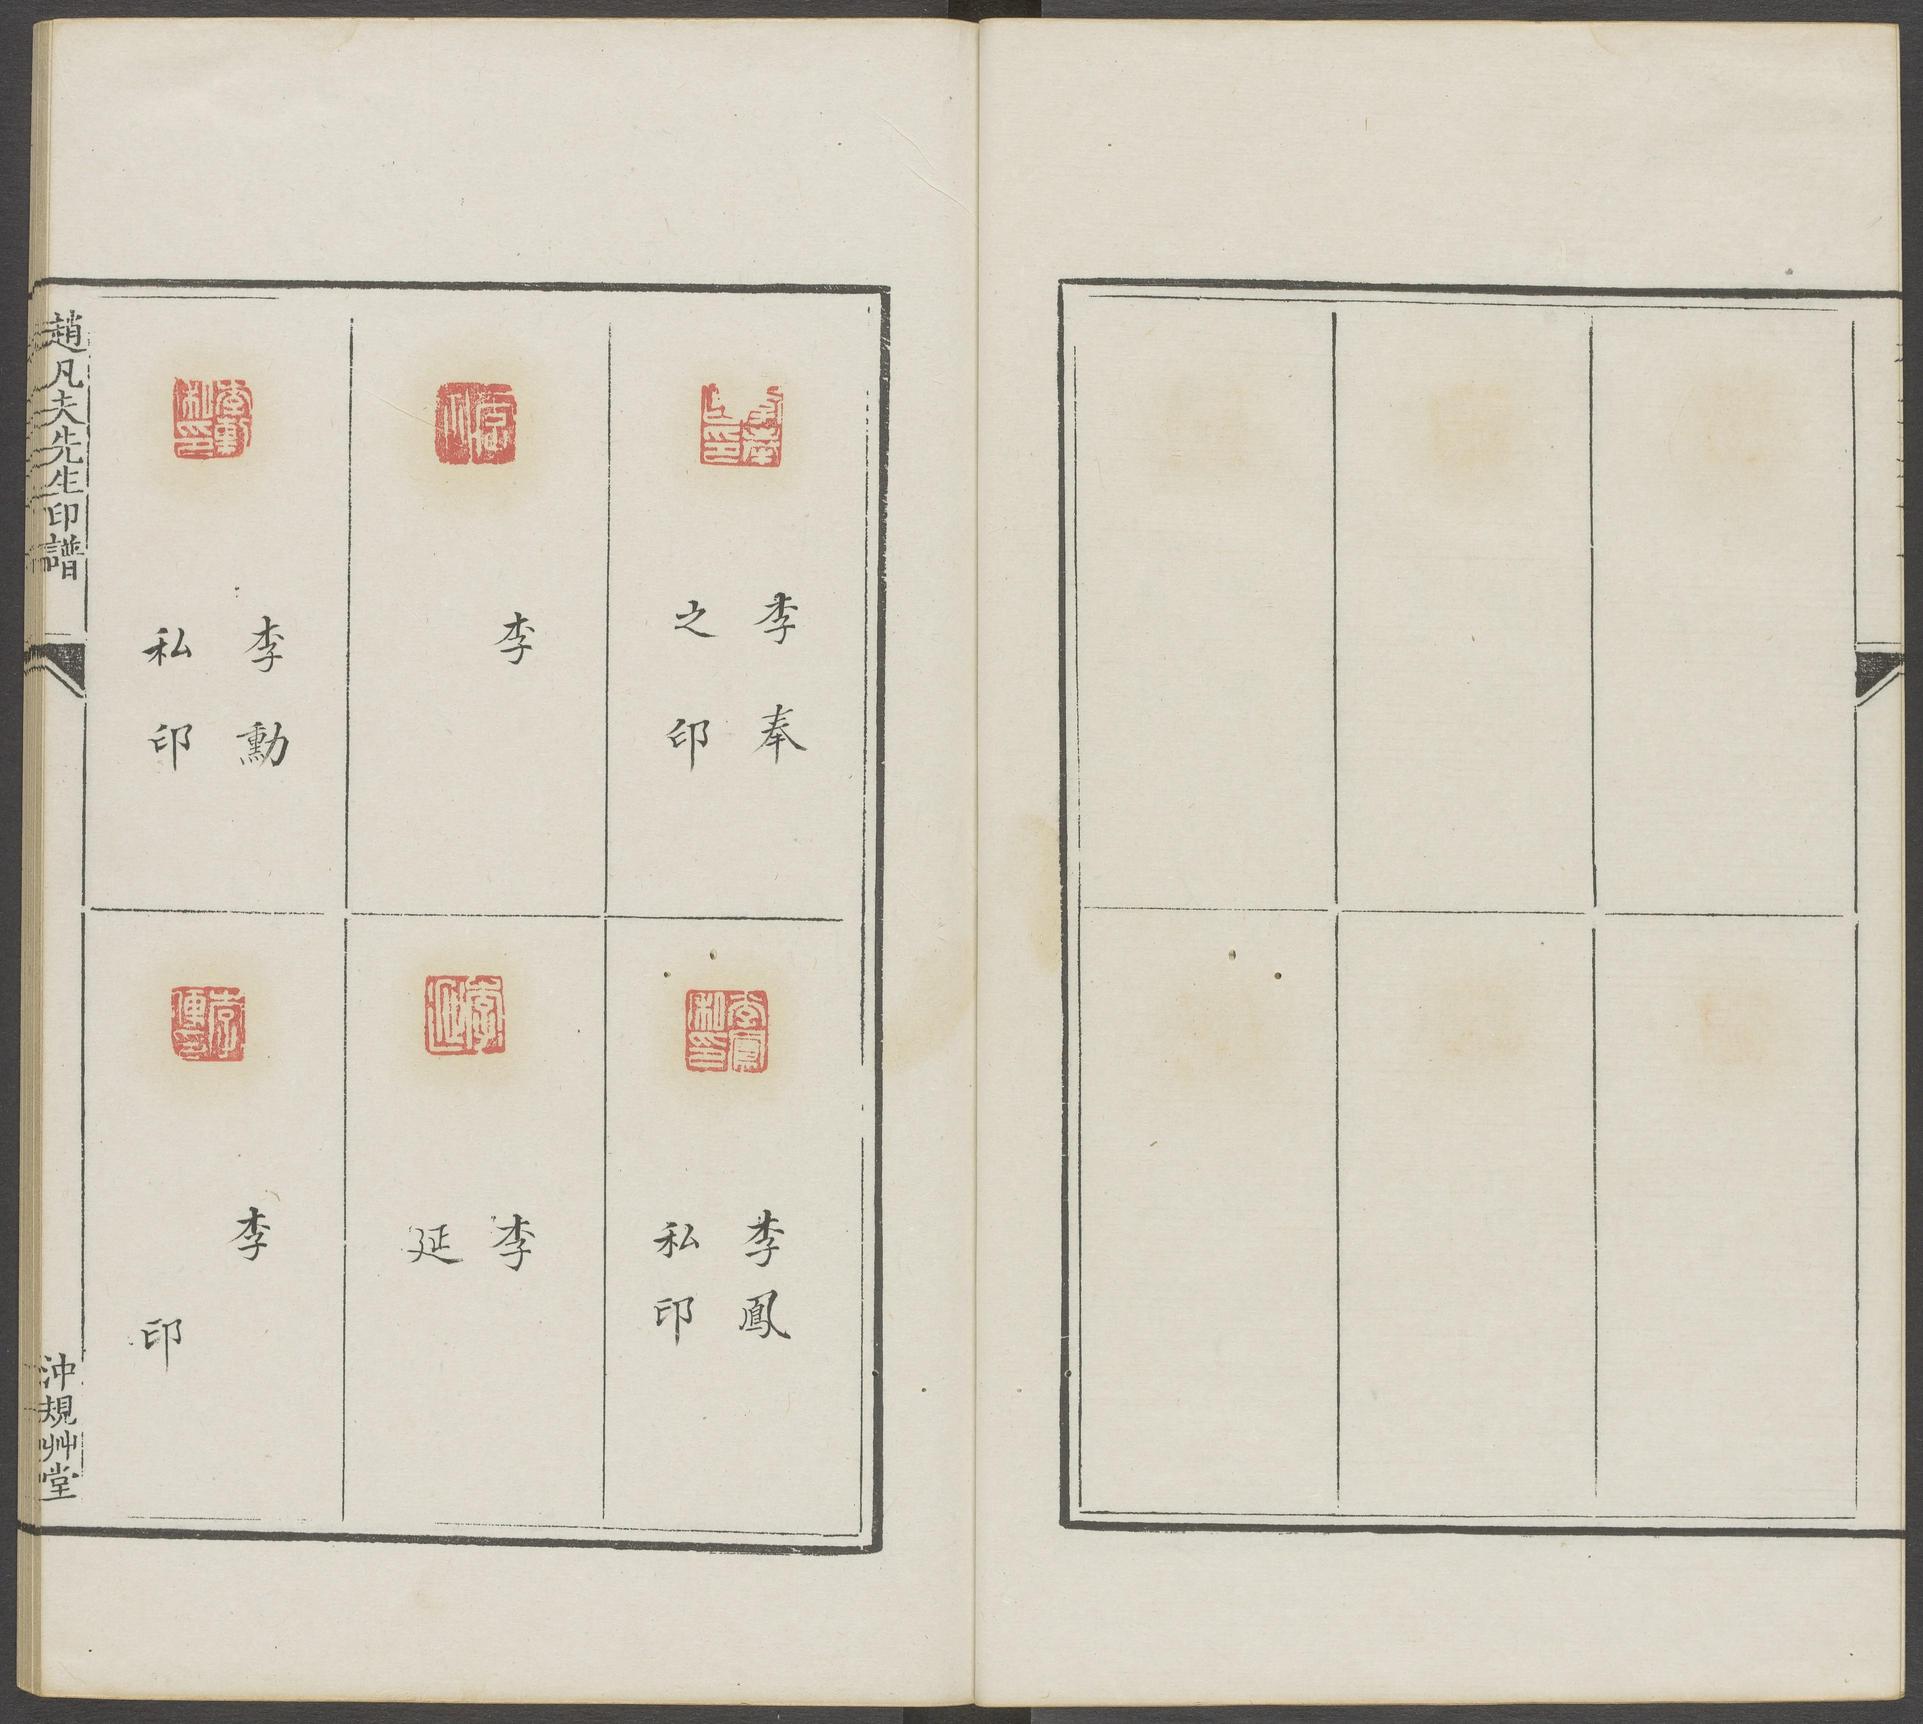 李奉
之印
李
李勳
私印
李鳳
私印
李
延
李
印
趙凡夫先生印譜
沖規艸堂